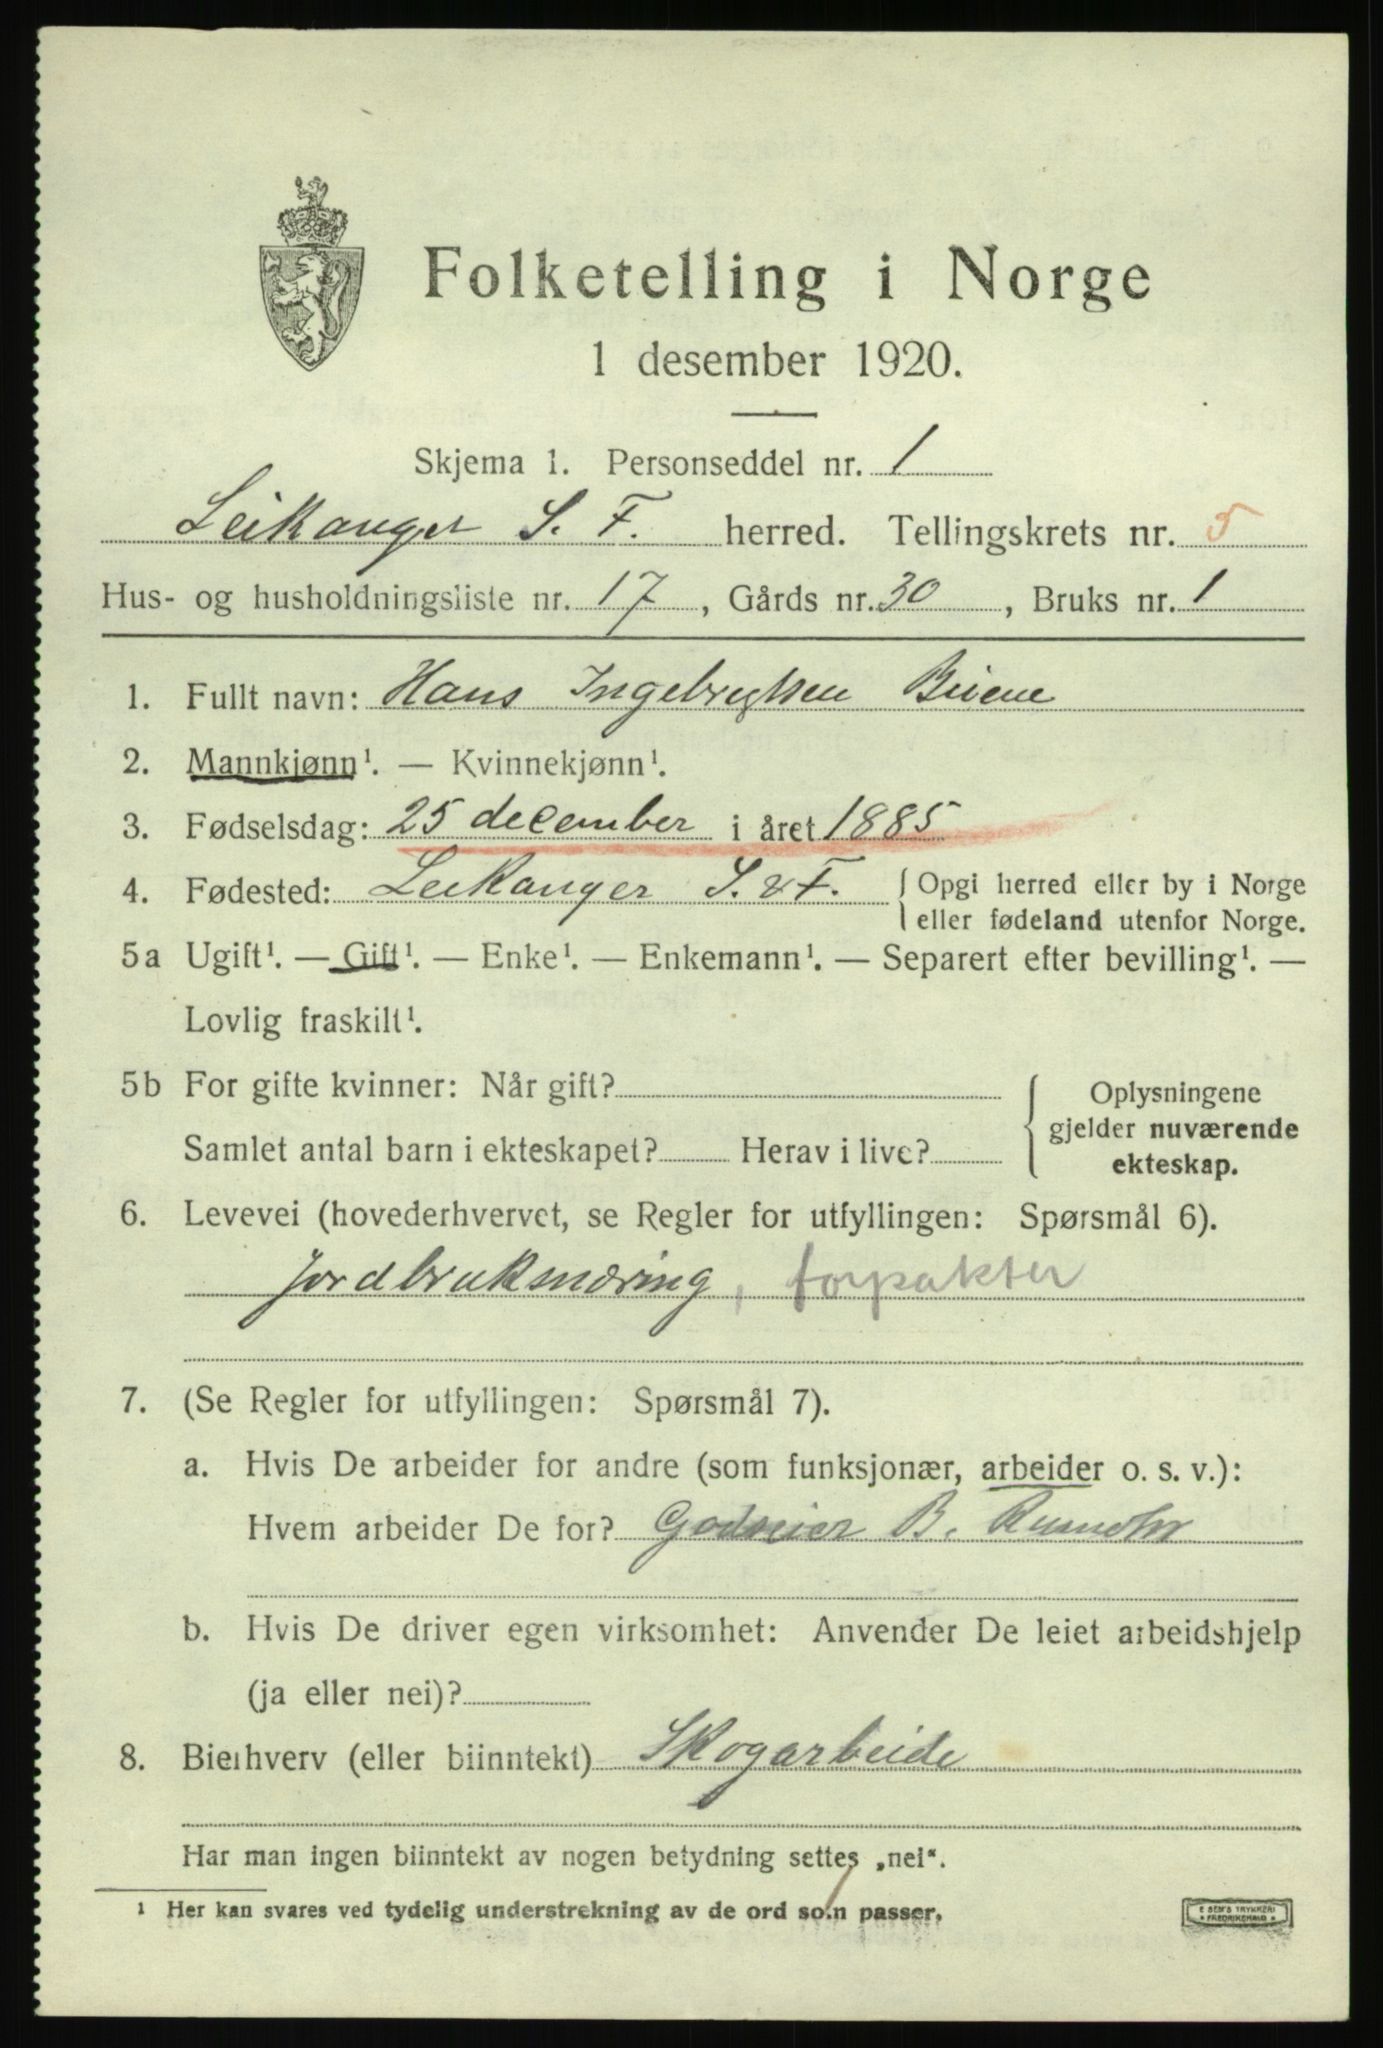 Folketelling i Norge
1 desember 1920.
Skjema 1. Personseddel nr. 1
Leikanger S. F. herred. Tellingskrets nr. 5
Hus- og husholdningsliste nr. 17, Gårds nr. 30, Bruks nr. 1
1. Fullt navn: Hans Ingebrigtsen
2. Mannkjønn¹. — Kvinnekjønn¹.
3. Fødselsdag: 25 december i året 1885
4. Fødested: Leikanger S. & F. { Opgi herred eller by i Norge
eller fødeland utenfor Norge.
5a Ugift¹. — Gift¹. — Enke¹. — Enkemann¹. — Separert efter bevilling¹. —
Lovlig fraskilt¹.
5b For gifte kvinner: Når gift?
Samlet antal barn i ekteskapet? Herav i live?
{ Oplysningene
gjelder nuværende
ekteskap.
6. Levevei (hovederhvervet, se Regler for utfyllingen: Spørsmål 6).
Jordbruksnæring, forpakter
7. (Se Regler for utfyllingen: Spørsmål 7).
a. Hvis De arbeider for andre (som funksjonær, arbeider o. s. v.):
Hvem arbeider De for? Godseier B.
b. Hvis De driver egen virksomhet: Anvender De leiet arbeidshjelp
(ja eller nei)?
8. Bierhverv (eller biinntekt) Skogarbeide
Har man ingen biinntekt av nogen betydning settes „nei“.
¹ Her kan svares ved tydelig understrekning av de ord som passer.
E SEM'S TRYKKERI
* FREDRIKSHALD *